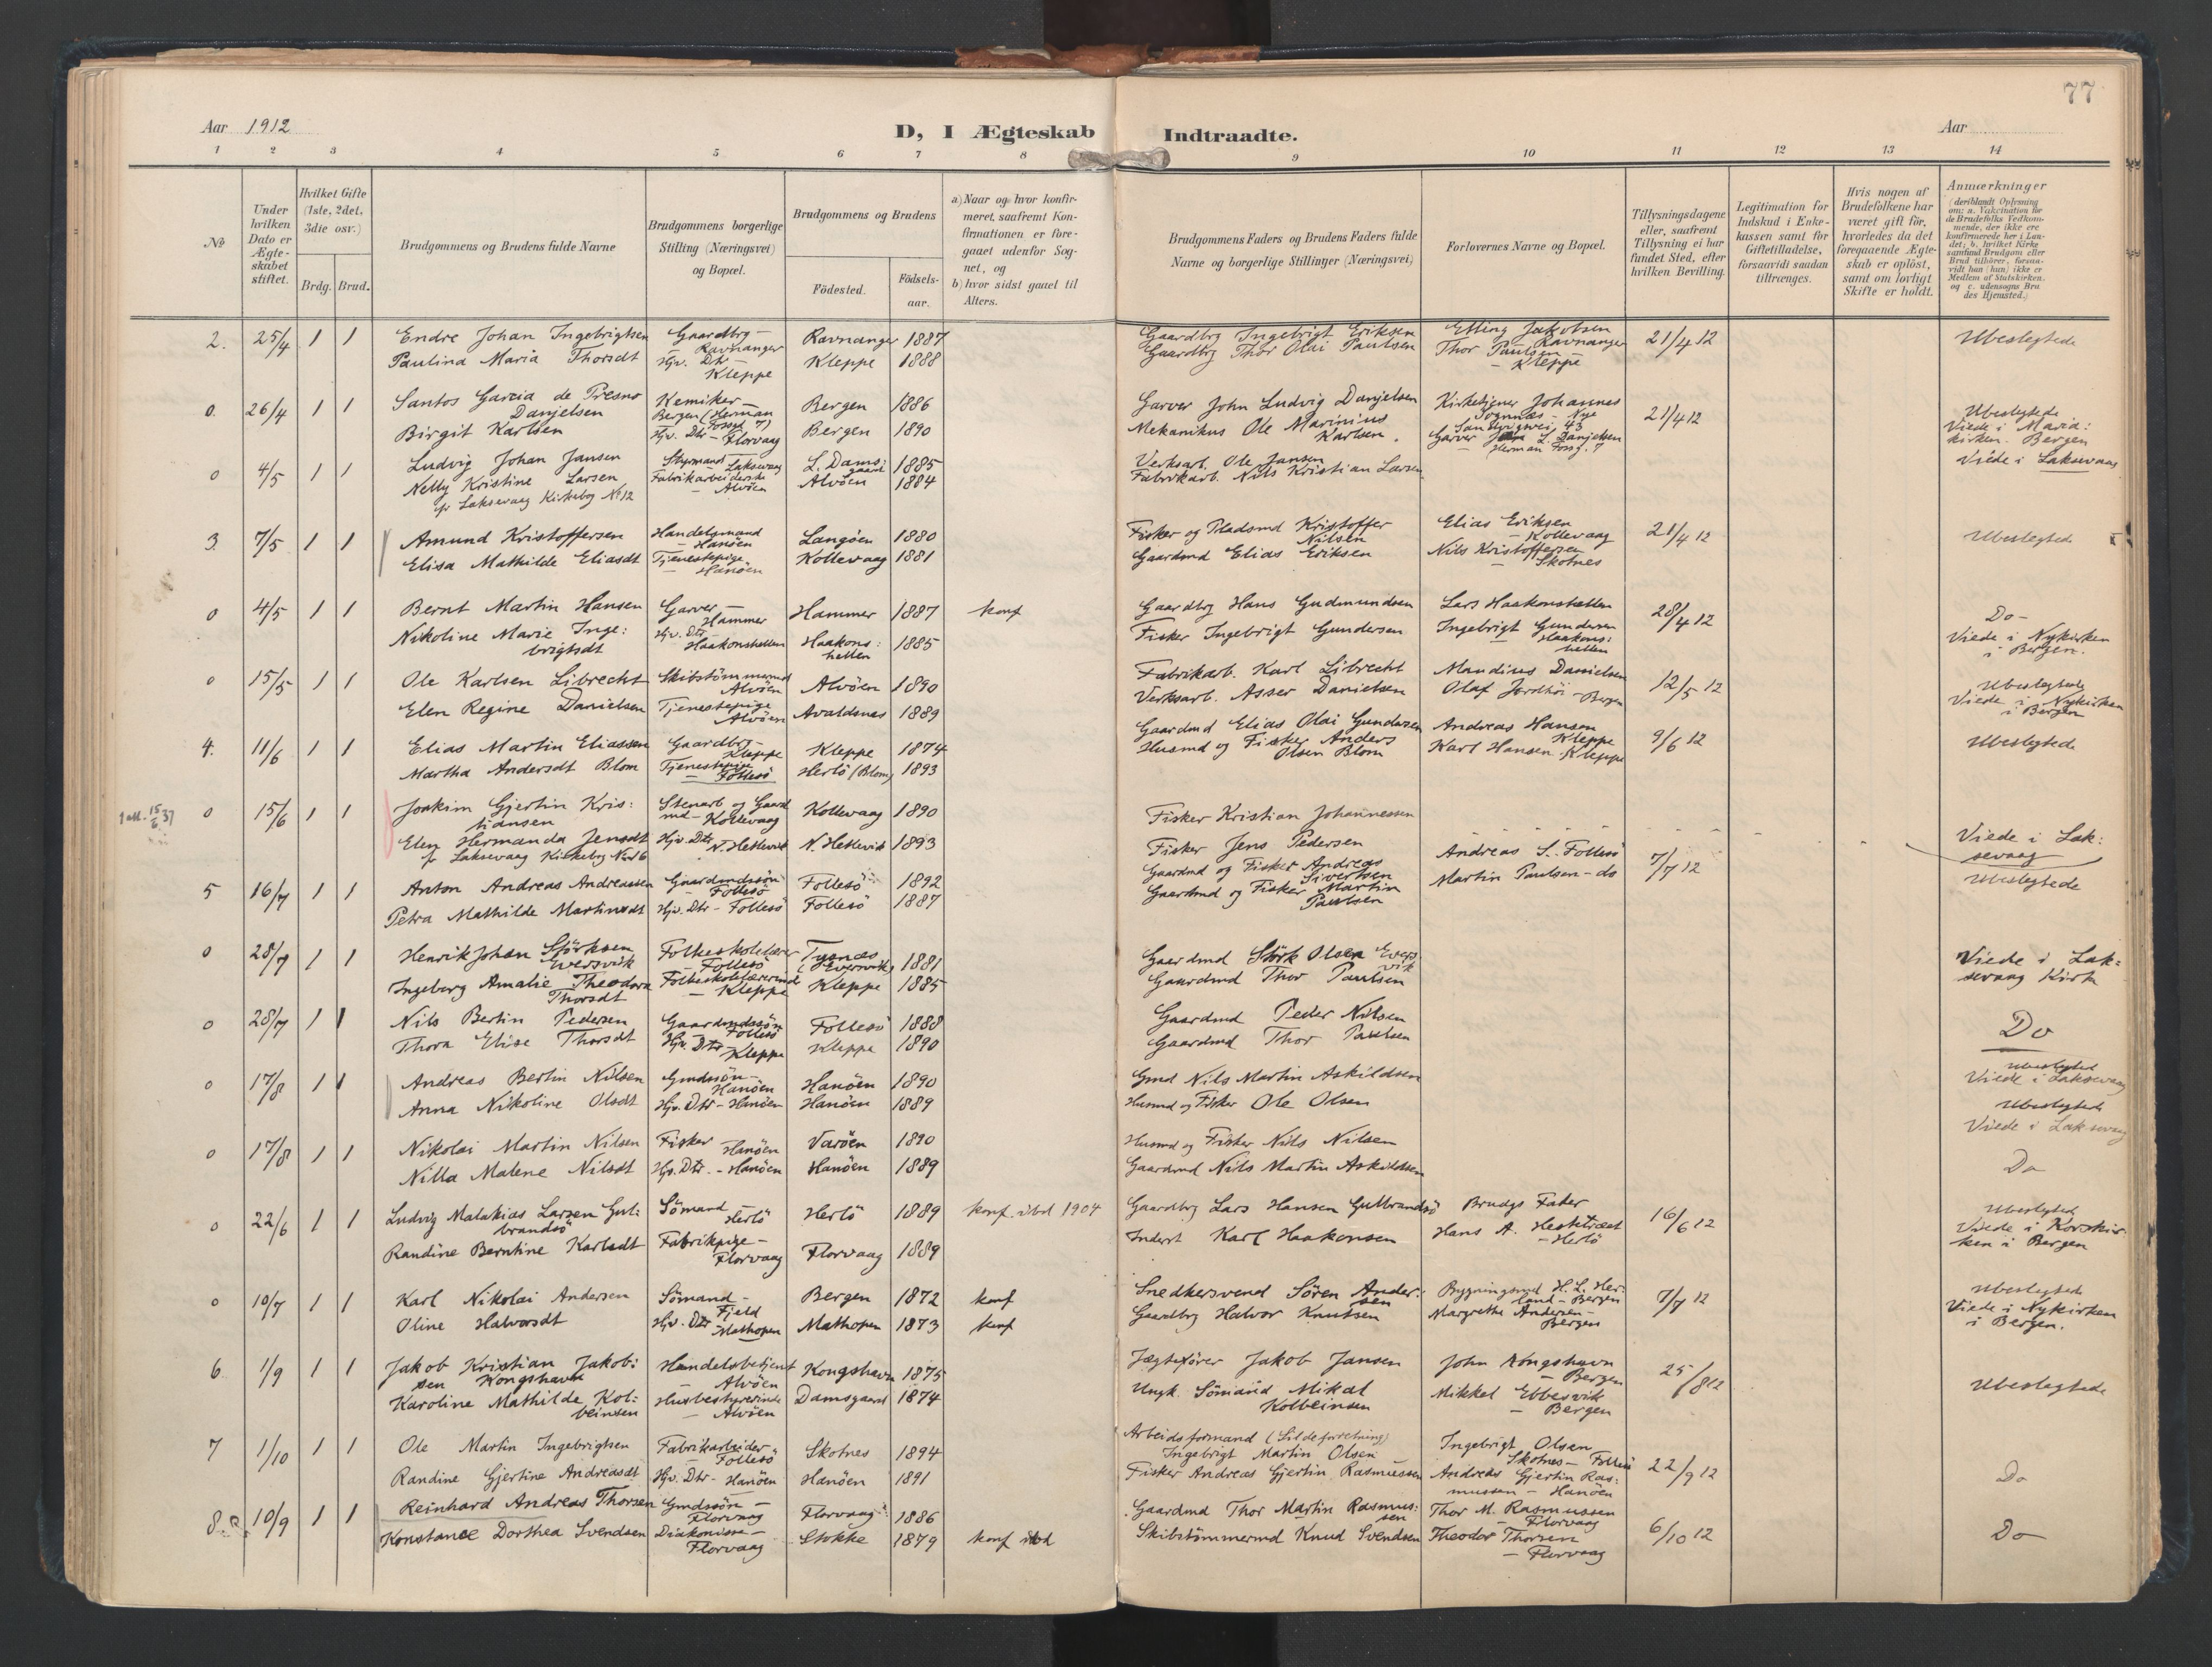 77
Aar 1912
D, I Ægteskab Indtraadte.
Aar
1 2 3 4 5 6 7 8 9 10 11 12 13 14
No
Under hvilken Dato er Ægteskabet stiftet.
Hvilket Gifte (1ste, 2det, 3die osv.)
Brdg. Brud.
Brudgommens og Brudens fulde Navne
Brudgommens borgerlige Stilling (Næringsvei) og Bopæl.
Brudgommens og Brudens
Fødested.
Fødselsaar.
a) Naar og hvor konfirmeret, saafremt Konfirmationen er foregaaet udenfor Sognet, og
b) hvor sidst gaaet til Alters.
Brudgommens Faders og Brudens Faders fulde Navne og borgerlige Stillinger (Næringsvei)
Forlovernes Navne og Bopæl.
Tillysningsdagene eller, saafremt Tillysning ei har fundet Sted, efter hvilken Bevilling.
Legitimation for Indskud i Enkekassen samt for Giftetilladelse, forsaavidt saadan tiltrænges.
Hvis nogen af Brudefolkene har været gift før, hvorledes da det foregaaende Ægteskab er opløst, samt om lovligt Skifte er holdt.
Anmærkninger (deriblandt Oplysning om: a. Vakcination for de Brudefolks Vedkommende, der ikke ere konfirmerede her i Landet; b. hvilket Kirkesamfund Brudgom eller Brud tilhører, forsaavidt han (hun) ikke er Medlem af Statskirken. og c. udensogns Brudes Hjemsted.)
2. 25/4 1 1 Endre Johan Ingebrigtsen Gaardbrg – Ravnanger Ravnanger 1887 Gaardbrg Ingebrigt Eriksen Elling Jakobsen Ravnanger 21/4 12 Ubeslegtede
Paulina Maria Thorsdt Hjv. Dtr – Kleppe Kleppe 1888 Gaardbrg Thor Olai Paulsen Thor Paulsen – Kleppe
0. 26/4 1 1 Santos Garcia de Presno Danjelsen Kemiker – Bergen (Herman Fossgt 7) Bergen 1886 Garver John Ludvig Danjelsen Kirketjener Johannes Sognnæs – Nye Sandvigsvei 43 21/4 12 Ubeslegtede
Birgit Karlsen Hjv. Dtr – Florvaag Bergen 1890 Mekanikus Ole Marinius Karlsen. Garver John L. Danjelsen – Herman Fossg. 7 Viede i Mariakirken. Bergen
0 4/5 1 1 Ludvig Johan Jansen Styrmand – Laksevaag L. Damsgaard 1885 Verksarb. Ole Jansen Viede i Laksevaag
Nelly Kristine Larsen Fabrikarbeiderske – Alvöen Alvöen 1884 Fabrikarb. Nils Kristian Larsen
fr Laksevaag Kirkebog No 12
3. 7/5 1 1 Amund Kristoffersen Handelsmand – Hanöen Langöen 1880 Fisker og Pladsmd Kristoffer Nilsen Elias Eriksen – Kollevaag 21/4 12 Ubeslegtede
Elisa Mathilde Eliasdt Tjenestepige – Hanöen Kollevaag 1881 Gaardmd Elias Eriksen Nils Kristoffersen – Skotnes
0 4/5 1 1 Bernt Martin Hansen Garver – Hammer Hammer 1887 konf Gaardbrg Hans Gudmundsen Lars Haakonshellen 28/4 12 Do –
Nikoline Marie Ingebrigtsdt Hjv. Dtr Haakonshellen Haakonshellen 1885 Fisker Ingebrigt Gundersen Ingebrigt Gundersen – Haakonshellen Viede i Nykirken i Bergen.
0 15/5 1 1 Ole Karlsen Librecht Skibstömmermd Alvöen Alvöen 1890 Fabrikarb. Karl Librecht Mandius Danielsen 12/5 12 Ubeslegtede
Elen Regine Danielsen Tjenestepige Alvöen Avaldsnes 1889 Verksarb. Asser Danielsen Olaf Jordhöi – Bergen Viede i Nykirken i Bergen
4. 11/6 1 1 Elias Martin Eliassen Gaardbrg – Kleppe Kleppe 1874 Gaardmd Elias Olai Gundersen Andreas Hansen Kleppe 9/6 12 Ubeslegtede
Martha Andersdt Blom Tjenestepige – Follesö Herlö (Blom) 1893 Husmd og Fisker Anders Olsen Blom Karl Hansen Kleppe
15/6 37 0 15/6 1 1 Joakim Gjertin Kristiansen Stenarb og Gaardmd – Kollevaag Kollevaag 1890 Fisker Kristian Johannessen
Elen Hermanda Jensdt Hjv. Dtr N. Hetlevik N. Hetlevik 1893 Fisker Jens Pedersen Viede i Laksevaag
fr Laksevaag Kirkebog
5 16/7 1 1 Anton Andreas Andreassen Gaardmdssön – Follesö Follesö 1892 Gaardmd og Fisker Andreas Sivertsen Andreas S. Follesö 7/7 12 Ubeslegtede
Petra Mathilde Martinsdt Hjv. Dtr – Follesö Follesö 1887 Gaardmd og Fisker Martin Paulsen Martin Paulsen – do
0 28/7 1 1 Henrik Johan Störksen Eversvik Folkeskolelærer Follesö Tysnes (Eversvik) 1881 Gaardmd Störk Olsen Eversvik Viede i Lak-
Ingeborg Amalie Theodora Thorsdt Folkeskolelærerinde – Kleppe Kleppe 1885 Gaardmd Thor Paulsen sevaag Kirke
0 28/7 1 1 Nils Bertin Pedersen Gaardmdssön Follesö Follesö 1888 Gaardmd Peder Nilsen Do
Thora Elise Thorsdt Hjv. Dtr – Kleppe Kleppe 1890 Gaardmd Thor Paulsen
0 17/8 1 1 Andreas Bertin Nilsen Gmdssön – Hanöen Hanöen 1890 Gmd Nils Martin Askildsen Ubeslegtede Viede i Laksevaag
Anna Nikoline Olsdt Hjv. Dtr – Hanöen Hanöen 1889 Husmd og Fisker Ole Olsen Ubeslegtede
0 17/8 1 1 Nikolai Martin Nilsen Fisker Hanöen Varöen 1890 Husmd og Fisker Nils Nilsen Viede i Laksevaag
Nilla Malene Nilsdt Hjv. Dtr. – Hanöen Hanöen 1889 Gaardmd Nils Martin Askildsen Do
0 22/6 1 1 Ludvig Malakias Larsen Gulbrandsö Sömand – Herlö Herlö 1889 konf. ibd 1904 Gaardbrg Lars Hansen Gulbrandsö Brudgs Fader 16/6 12 Ubeslegtede
Randine Berntine Karlsdt Fabrikpige – Florvaag Florvaag 1889 Inderst Karl Haakonsen Hans A. – Herlö Viede i Korskirken i Bergen
0 10/7 1 1 Karl Nikolai Andersen Sömand – Fjeld Bergen 1872 konf Snedkersvend Sören Andersen Bygningsmd H. L. Herland – Bergen 7/7 12 Ubeslegtede
Oline Halvorsdt Hjv. Dtr Mathopen Mathopen 1873 konf Gaardbrg Halvor Knutsen Margrethe Andersen – Bergen Viede i Nykirken i Bergen.
6 1/9 1 1 Jakob Kristian Jakobsen Kongshavn Handelsbetjent – Alvöen Kongshavn 1875 Jægtefører Jakob Jansen John Kongshavn – Bergen 25/8 12 Ubeslegtede
Karoline Mathilde Kolbeinsen Husbestyrerinde – Alvöen Damsgaard 1874 Ungk. Sömand Mikal Kolbeinsen Mikkel Ebbesvik – Bergen
7 1/10 1 1 Ole Martin Ingebrigtsen Fabrikarbeider – Follesö Skotnes 1894 Arbeidsformand (Sildeforretning) Ingebrigt Martin Olsen Ingebrigt Olsen Skotnes – Follesö 22/9 12 Do
Randine Gjertine Andreasdt Hjv. Dtr – Hanöen Hanöen 1891 Fisker Andreas Gjertin Rasmussen Andreas Gjertin Rasmussen – Hanöen
8. 10/9 1 1 Reinhard Andreas Thorsen Gmdssön – Florvaag Florvaag 1886 Gaardmd Thor Martin Rasmussen Thor M. Rasmussen – Florvaag 6/10 12 Do
Konstance Dorthea Svendsen Diakonisse – Florvaag Stokke 1879 konf ibd Skibstömmermd Knud Svendsen Theodor Thorsen – Florvaag